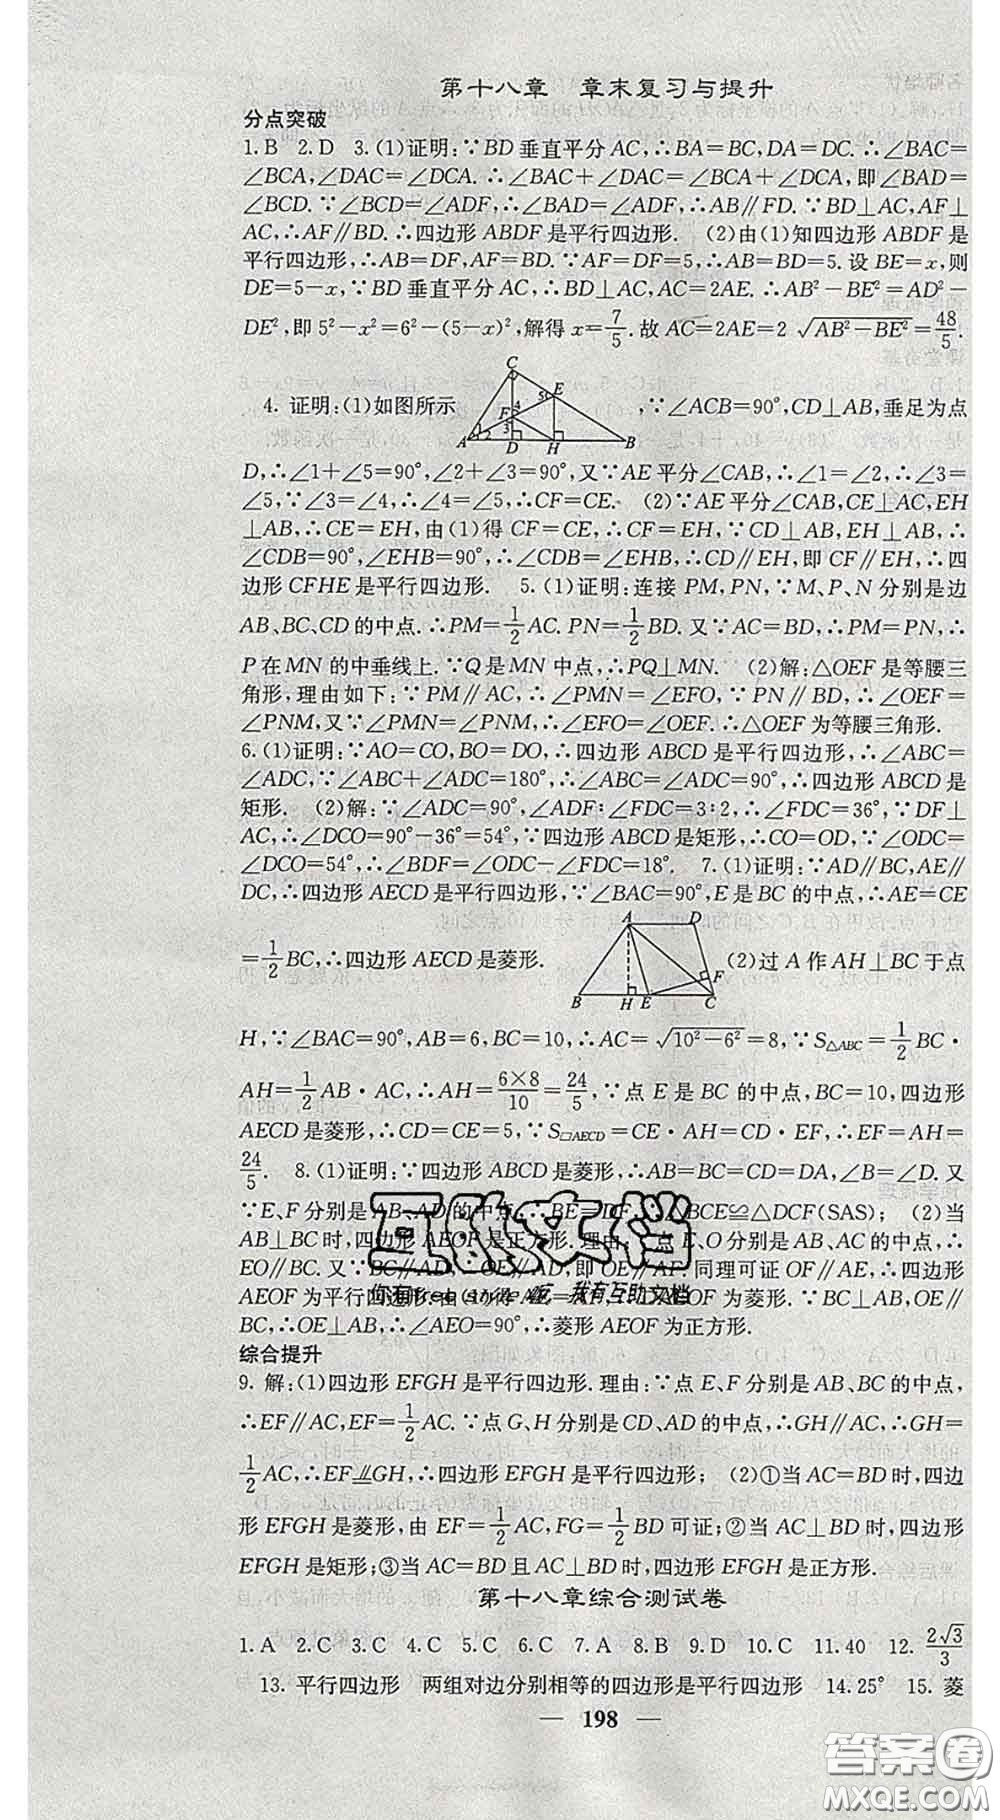 第十八章　章末复习与提升
分点突破
1.B　2.D　3.(1)证明:∵BD垂直平分AC,∴BA=BC,DA=DC.∴∠BAC=
∠BCA,∠DAC=∠DCA.∴∠BAC+∠DAC=∠BCA+∠DCA,即∠BAD=
∠BCD.∵∠BCD=∠ADF,∴∠BAD=∠ADF,∴AB∥FD.∵BD⊥AC,AF⊥
AC,∴AF∥BD.∴四边形ABDF是平行四边形.　(2)由(1)知四边形ABDF是
平行四边形,∴AB=DF,AF=BD.∵AF=DF=5,∴AB=BD=5.设BE=x,则
DE=5-x,∵BD垂直平分AC,∴BD⊥AC,AC=2AE.∴AB²-BE²=AD²-
DE²,即5²-x²=6²-(5-x)²,解得x=7/5.故AC=2AE=2√(AB²-BE²)=48/5.
4.证明:(1)如图所示 C E 5 4 F 3 1 2 A D H B ,∵∠ACB=90°,CD⊥AB,垂足为点
D,∴∠1+∠5=90°,∠2+∠3=90°,又∵AE平分∠CAB,∴∠1=∠2,∴∠3=
∠5,∵∠3=∠4,∴∠4=∠5,∴CF=CE.　(2)∵AE平分∠CAB,CE⊥AC,EH
⊥AB,∴CE=EH,由(1)得CF=CE,∴CF=EH,∵CD⊥AB,EH⊥AB,∴
∠CDB=90°,∠EHB=90°,∴∠CDB=∠EHB,∴CD∥EH,即CF∥EH,∴四
边形CFHE是平行四边形.　5.(1)证明:连接PM,PN,∵M、P、N分别是边
AB、BC、CD的中点.∴PM=1/2AC.PN=1/2BD.又∵AC=BD,∴PM=PN,∴
P在MN的中垂线上.∵Q是MN中点,∴PQ⊥MN.　(2)解:△OEF是等腰三
角形,理由如下:∵PM∥AC,∴∠PMN=∠EFO,∵PN∥BD,∴∠OEF=
∠PNM,又∵∠PMN=∠PNM,∴∠EFO=∠OEF.∴△OEF为等腰三角形.
6.(1)证明:∵AO=CO,BO=DO,∴四边形ABCD是平行四边形,∴∠ABC=
∠ADC,∵∠ABC+∠ADC=180°,∴∠ABC=∠ADC=90°,∴四边形ABCD是
矩形.　(2)解:∵∠ADC=90°,∠ADF∶∠FDC=3∶2,∴∠FDC=36°,∵DF⊥
AC,∴∠DCO=90°-36°=54°,∵四边形ABCD是矩形,∴CO=OD,∵∠ODC=
∠DCO=54°,∴∠BDF=∠ODC-∠FDC=18°.　7.(1)证明:∵AD∥BC,AE∥
DC,∴四边形AECD是平行四边形,∵∠BAC=90°,E是BC的中点,∴AE=CE
=1/2BC,∴四边形AECD是菱形. A D F B H E C (2)过A作AH⊥BC于点
H,∵∠BAC=90°,AB=6,BC=10,∴AC=√(10²-6²)=8,∵S△ABC=1/2BC·
AH=1/2AB·AC,∴AH=6×8/10=24/5,∵点E是BC的中点,BC=10,四边形
AECD是菱形,∴CD=CE=5,∵S□AECD=CE·AH=CD·EF,∴EF=AH=
24/5.　8.(1)证明:∵四边形ABCD是菱形,∴AB=BC=CD=DA,∠B=∠D.又
∵E、F分别是AB、AD的中点,∴BE=DF, BCE≌△DCF(SAS);　(2)当
AB⊥BC时,四边形AEOF是正方形.理由: 点E、O分别是AB、AC的中点,∴
EO∥BC.又∵BC∥AD,∴OE∥AD,即OE∥AF.同理可证OF∥AE,∴四边形
AEOF为平行四边形.由 AEOF为菱形.∵BC⊥AB,OE∥
BC,∴OE⊥AB,∴∠AEO=90°,∴菱形AEOF为正方形.
互助文档
你有 我有互助文档
综合提升
9.解:(1)四边形EFGH是平行四边形.理由:∵点E、F分别是AB、BC的中点,
∴EF∥AC,EF=1/2AC.∵点G、H分别是CD、AD的中点,∴GH∥AC,∴GH=
1/2AC,∴EF⫽GH,∴四边形EFGH是平行四边形;　(2)①当AC=BD时,四边
形EFGH是菱形,由EF=1/2AC,FG=1/2BD可证;②当AC⊥BD时,四边形
EFGH是矩形;③当AC=BD且AC⊥BD时,四边形EFGH是正方形.
第十八章综合测试卷
1.A　2.C　3.C　4.C　5.C　6.C　7.A　8.B　9.D　10.C　11.40　12.2√3/3
13.平行四边形　两组对边分别相等的四边形是平行四边形　14.25°　15.菱
— 198 —
答案圈
MXQE.COM